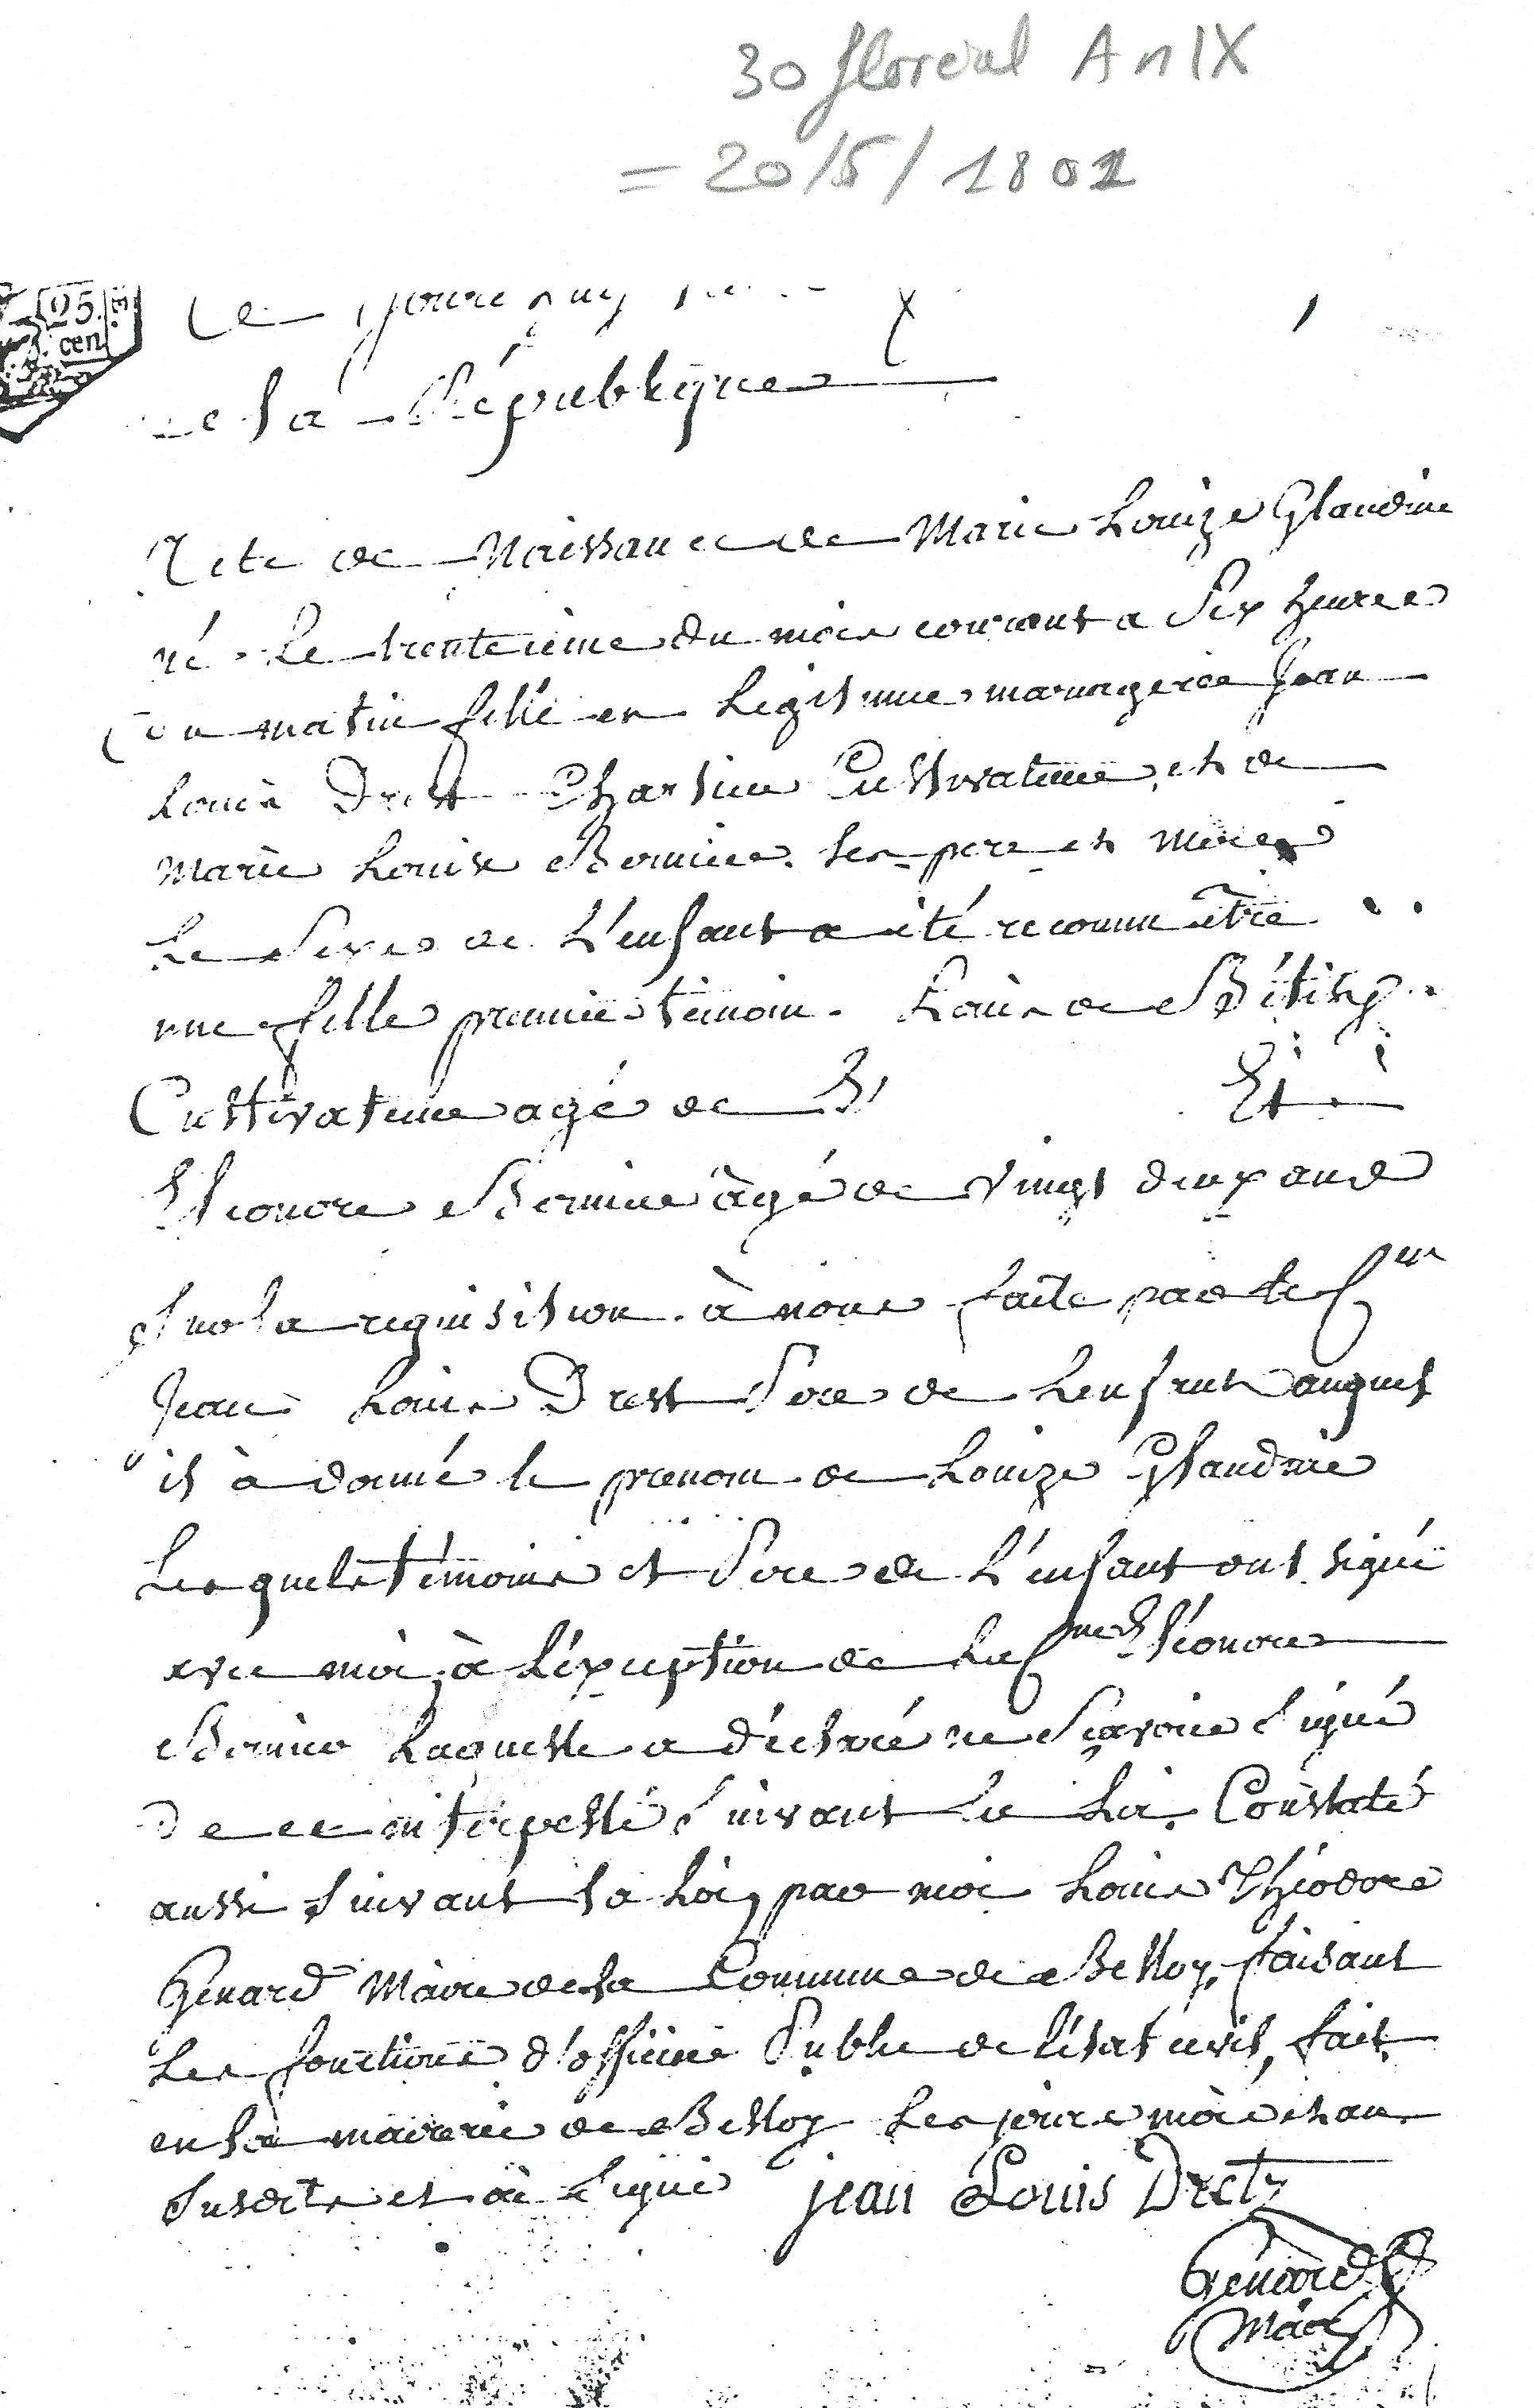 30 floreal An IX
= 20/5/1801
25.
cen
Ce jourd'huy
de la République
Acte de Naissance de Marie Louize Glandine
né le trenteième du mois courant a Six heures
du matin fille en legitimme mariage de Jean
Louis Drest Chartier Cultivateur et de
Marie Louise Bernier ses pere et mere
Le Sexe de L'enfant a été reconnu être
une fille premier témoin. Louis de Bétisy
Cultivateur agé de 31 Et
Eléonore Bernier âgé de vingt deux ans
Sur la requisition à nous faite par le Cen
Jean Louis Drest Pere de Lenfant auquel
il à donné le prenom de Louize Glandine
Lesquels témoins et Pere de L'enfant ont signé
avec moi, à l'exception de La Cne Eléonore
Bernier Laquelle a déclaré ne Sçavoir Signé
De ce interpellé Suivant La Loi. Constaté
aussi Suivant la Loi, par moi Louis Théodore
Genard Maire de la Commune de Belloy, faisant
Les fonctions d'officier Public de l'état civil, fait
en la mairerie de Belloy Les jour mois et an
Susdits et ai Signé jean Louis Dretz
Genard
Maire